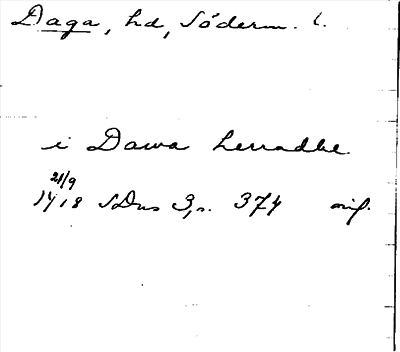 Daga, hd, Söderm. l.
i Dawa herradhe
21/9
1418 SDns 3, s. 374 orig.